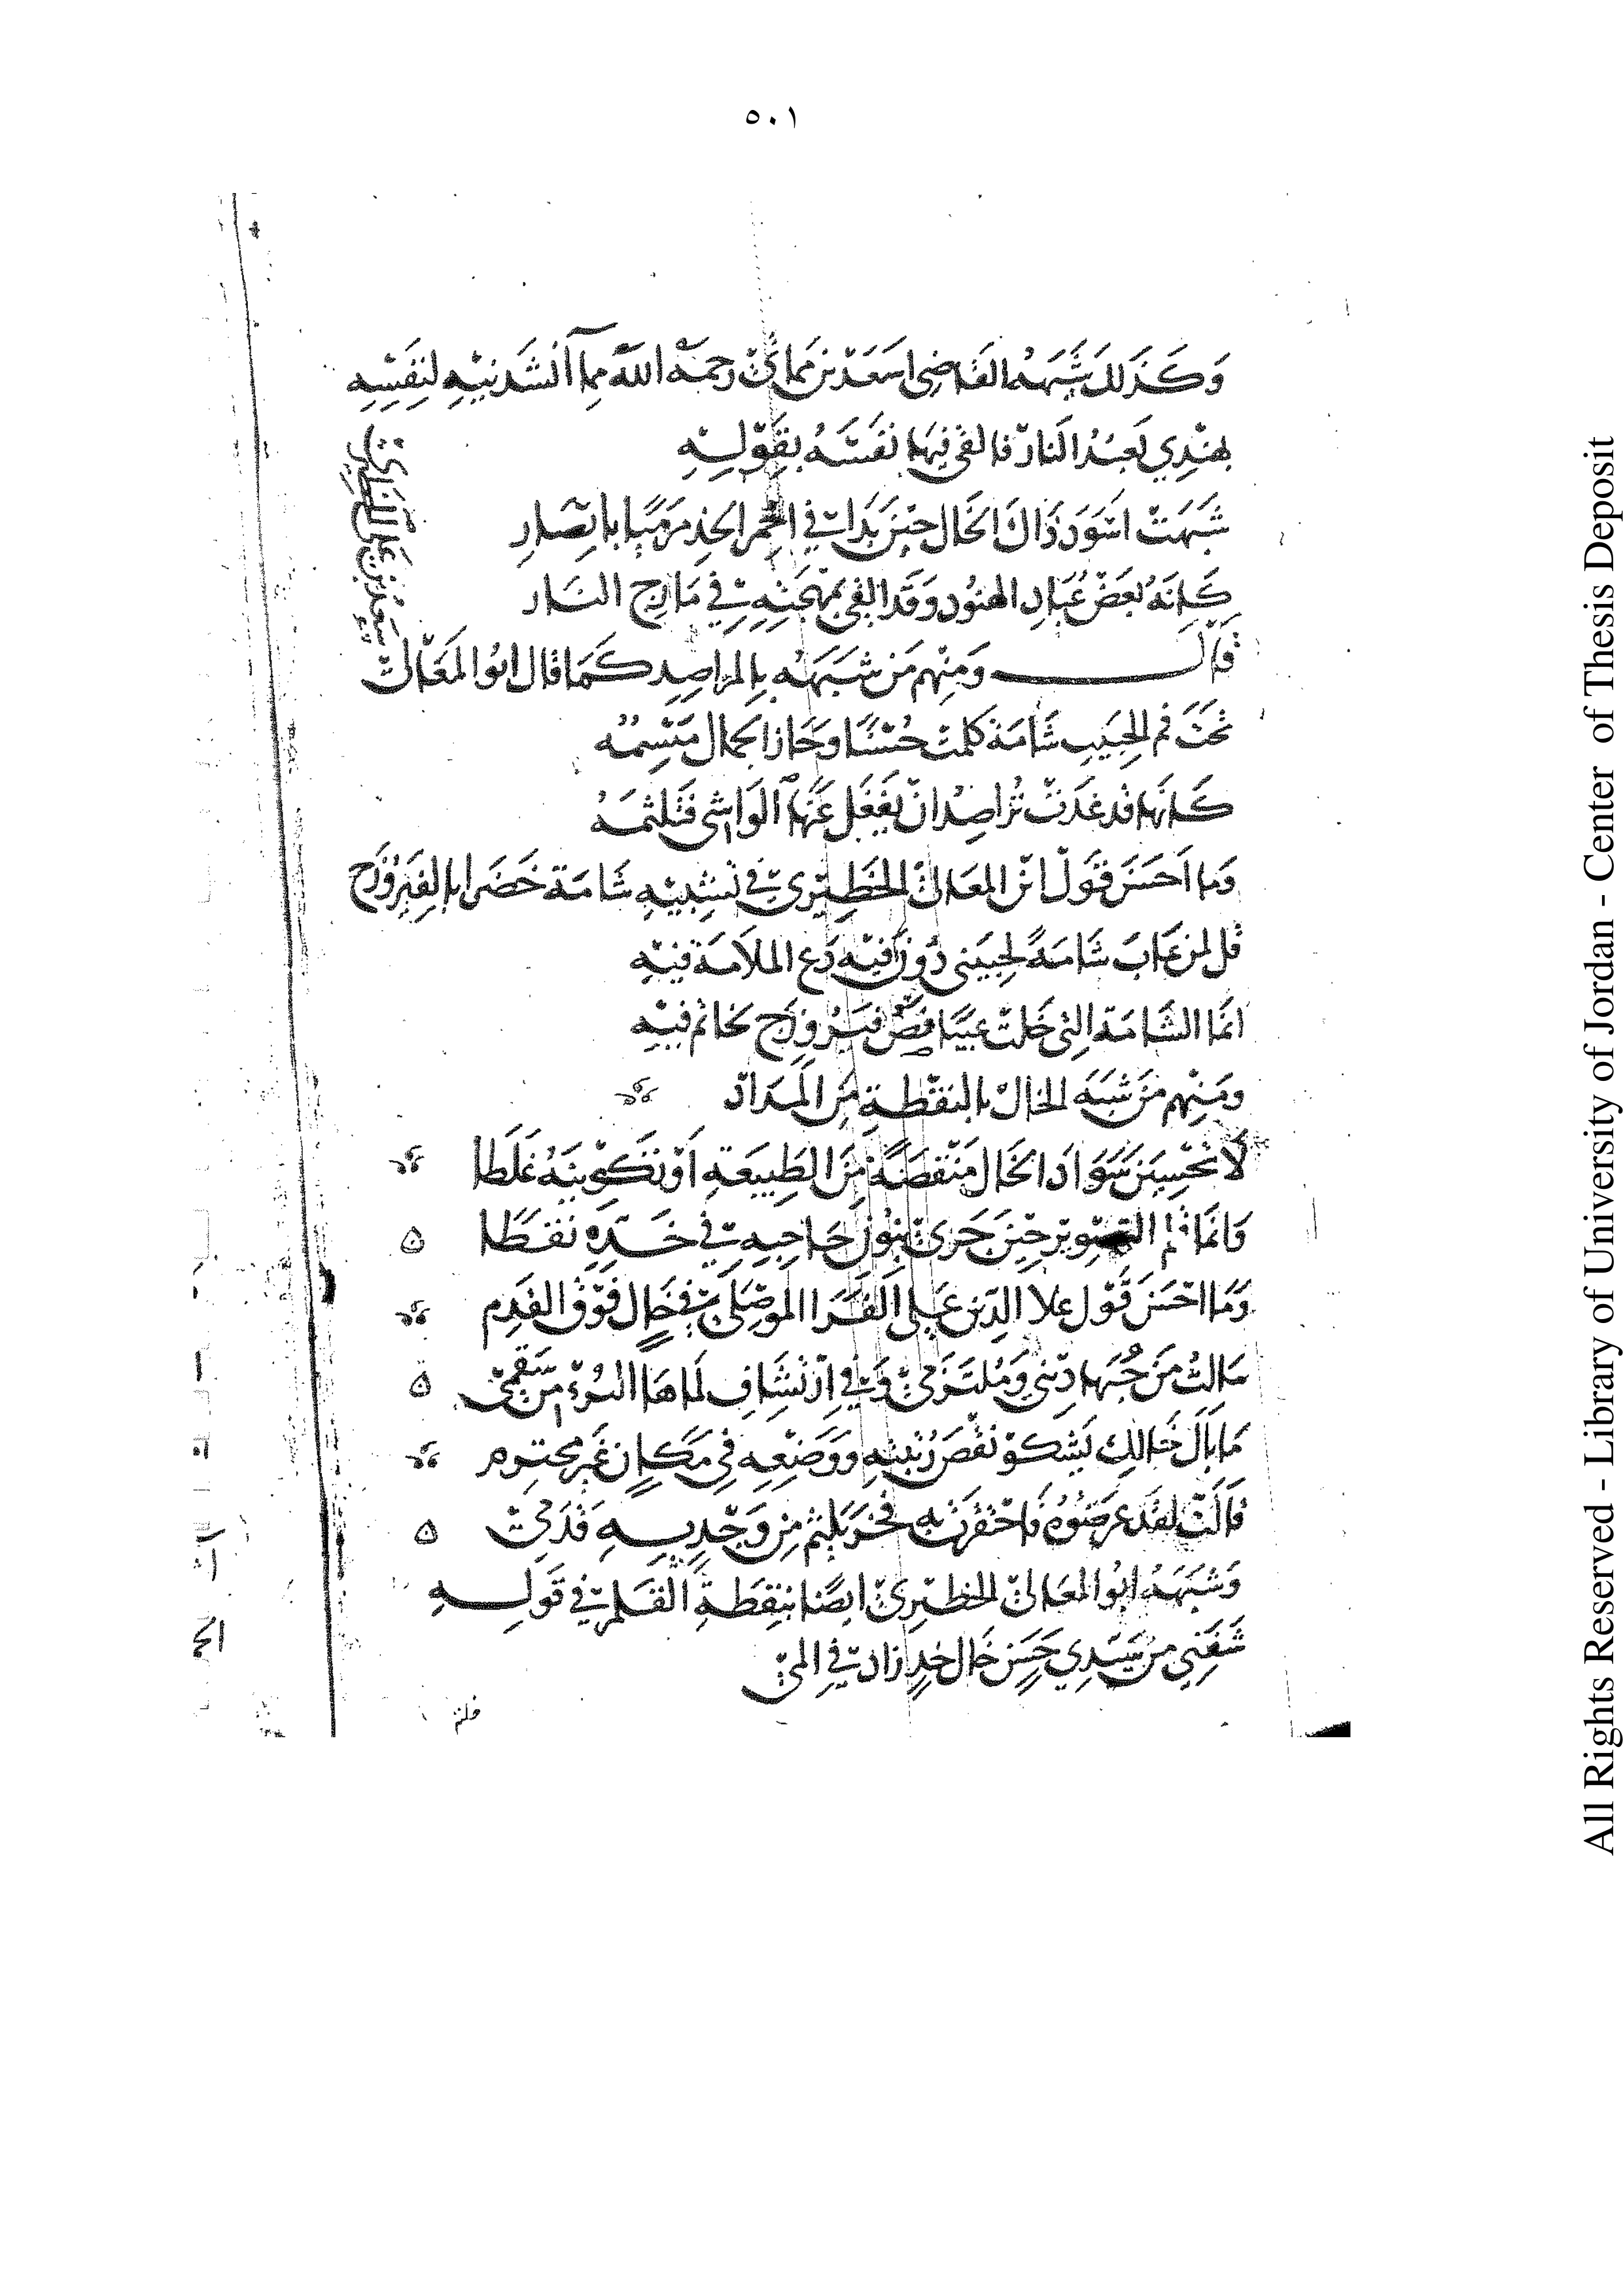 ٥٠١
وَكَذَلِكَ شَبَّهَهُ القَاضِي اسَعَدْ بن مماتي رحمَه اللهُ مِمَا أَنشَدنيْهِ لنَفْسِهِ
بهنْدِي يَعبُدُ النارْ فالقى فيهَا نفسَهُ بقَوْلِهِ
شَبّهَتْ اسْوَدَ ذَاكَ الخَال حيْنَ بَدَا في احْمر الخدِ مَرميًا بابصَار
كَانهُ بَعضْ عُبَادِ الهنُود وَقَد القى بمهْجَتِهِ في مَارج النَار
قَالَ وَمِنْهم مَن شبَهَهُ بالمراصِدِ كَمَا قال ابوُا لمعَالي
سَعدْ بن عَلي الحظيري
تَحْتَ فم الحِبَيب شَامَة كملتْ حُسْنًا وحَاز الجمال مَبْسِمُهُ
كَانهَا قد غدَتْ تُراصِدُ انْ يَغْفَل عَنهَا الوَاشى فتَلثمَهُ
وَما احَسَنَ قَولْ ابي المعَالي الحَظِيْرى في تشبيْهِ شَامَة خَضرَا بالفيروُزَج
قل لمن عَابَ شَامَةً لحبيبْى دُونَ فيْهِ دَعِ الملاَمَة فيْهِ
انمَا الشَامَة التى خلتَ عيبًا فصْ فيرُوزَج بخاتم فيْهِ
ومَنِهم مَنْ شبَهَ الخالْ بالنقْطَةِ مِنَ المدَادْ
لاَ تحْسِبَنَ سَوَادَ الخَال مَنْقصَةً مِنَ الطَبِيعَةِ أوْ تكوْينَهُ غَلَطا
وَانمَا قلم التصْويْر حِيْنَ جَرَى بنوُن حَاجبِهِ في خَدِهِ نقَطَا ه
وَمَا احْسَنَ قَوْل علا الدِيْن عَلي الفَرَا الموصْلي في خَالٍ فَوْقَ القَدِم
مَالتُ مَنْ حُبهَا دِيْني وَمُلتَزمي وَفي ارْتشَافِ لمَاهَا البُرْءُ مِن سَقَمي ه
مَا بالَ خَالكِ يَشكوْ نقْصَ رُتبتهِ ووَضْعِهِ فِى مَكَانٍ غَيْر محتِرم
قَالَتْ لقَد عرَضوُهُ فَاحْتقرْت بِهِ فخرَ يلثم مِن وَجْدِيهِ قَدَمي ه
وَشبهَهُ ابوُا المعَالي الحظيْري ايضًا بنقطَةِ القَلم في قَولِهِ
شَفَنِي مِنْ سَيّدِي حَسَنٍ خَال خدٍ زادَ في المي
All Rights Reserved - Library of University of Jordan - Center of Thesis Deposit